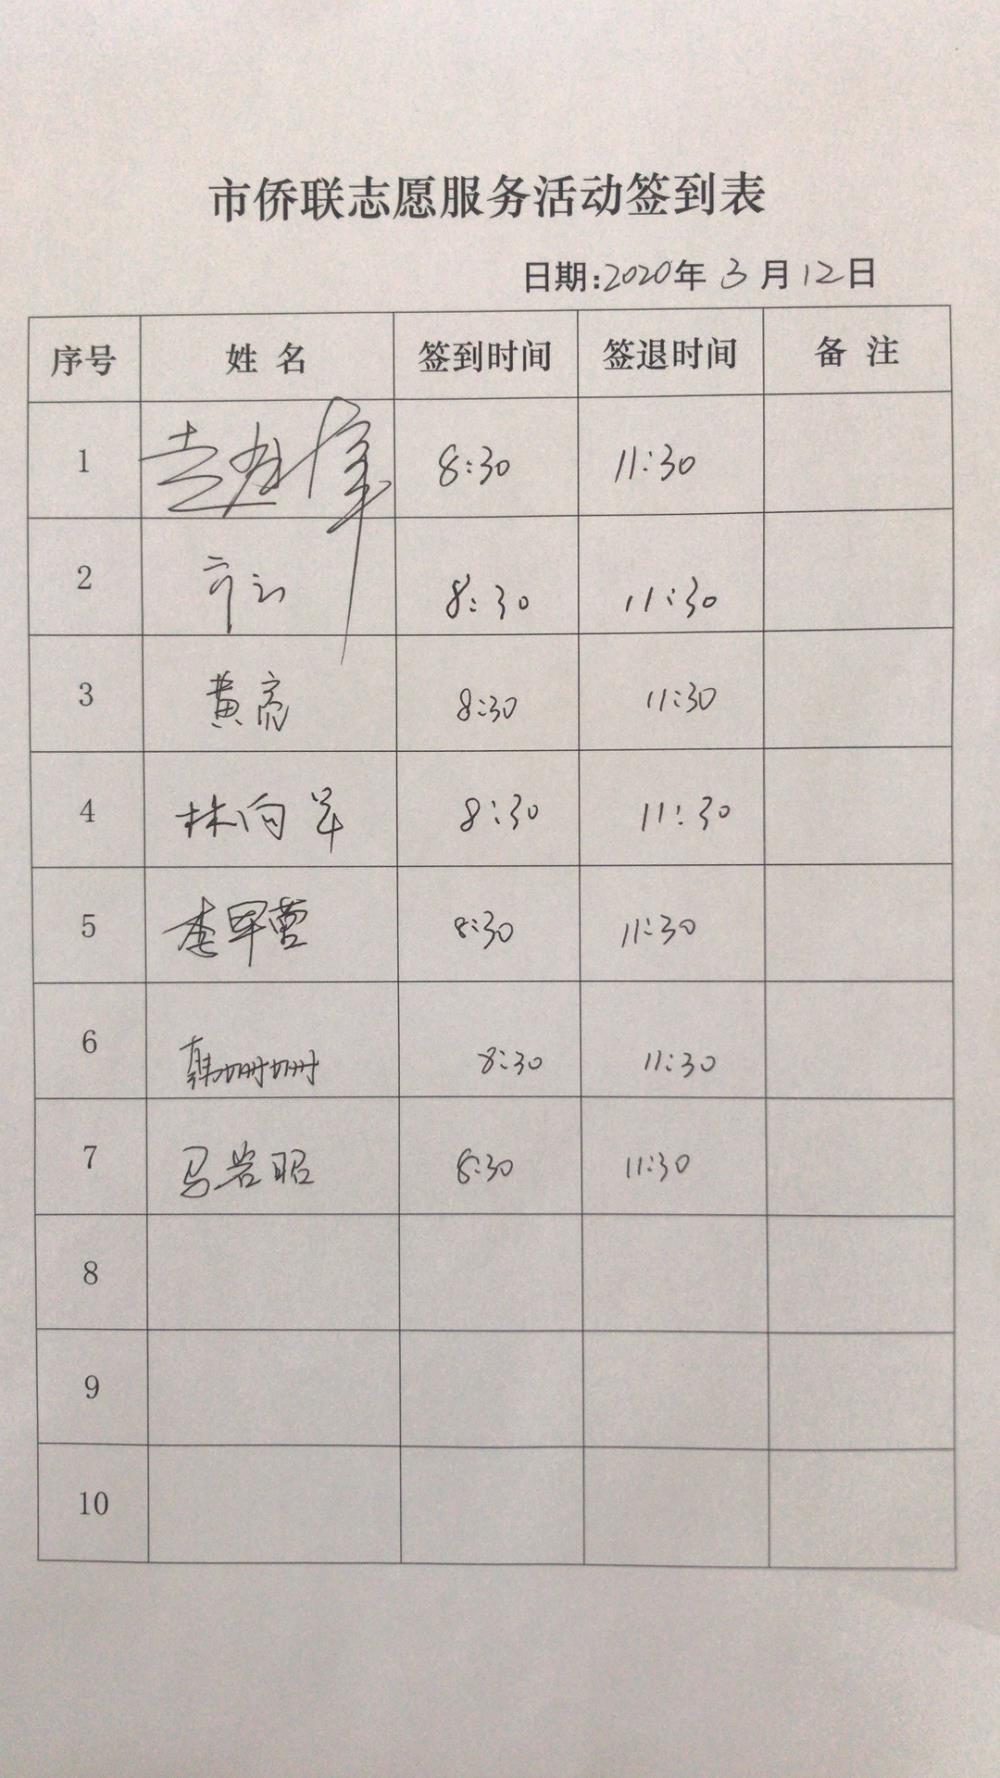 市侨联志愿服务活动签到表
日期:2020年3月12日
序号 姓名 签到时间 签退时间 备注
1 8:30 11:30
2 8:30 11:30
3 黄亮 8:30 11:30
4 林向 8:30 11:30
5 李早 8:30 11:30
6 韩珊珊 8:30 11:30
7 马岩昭 8:30 11:30
8
9
10